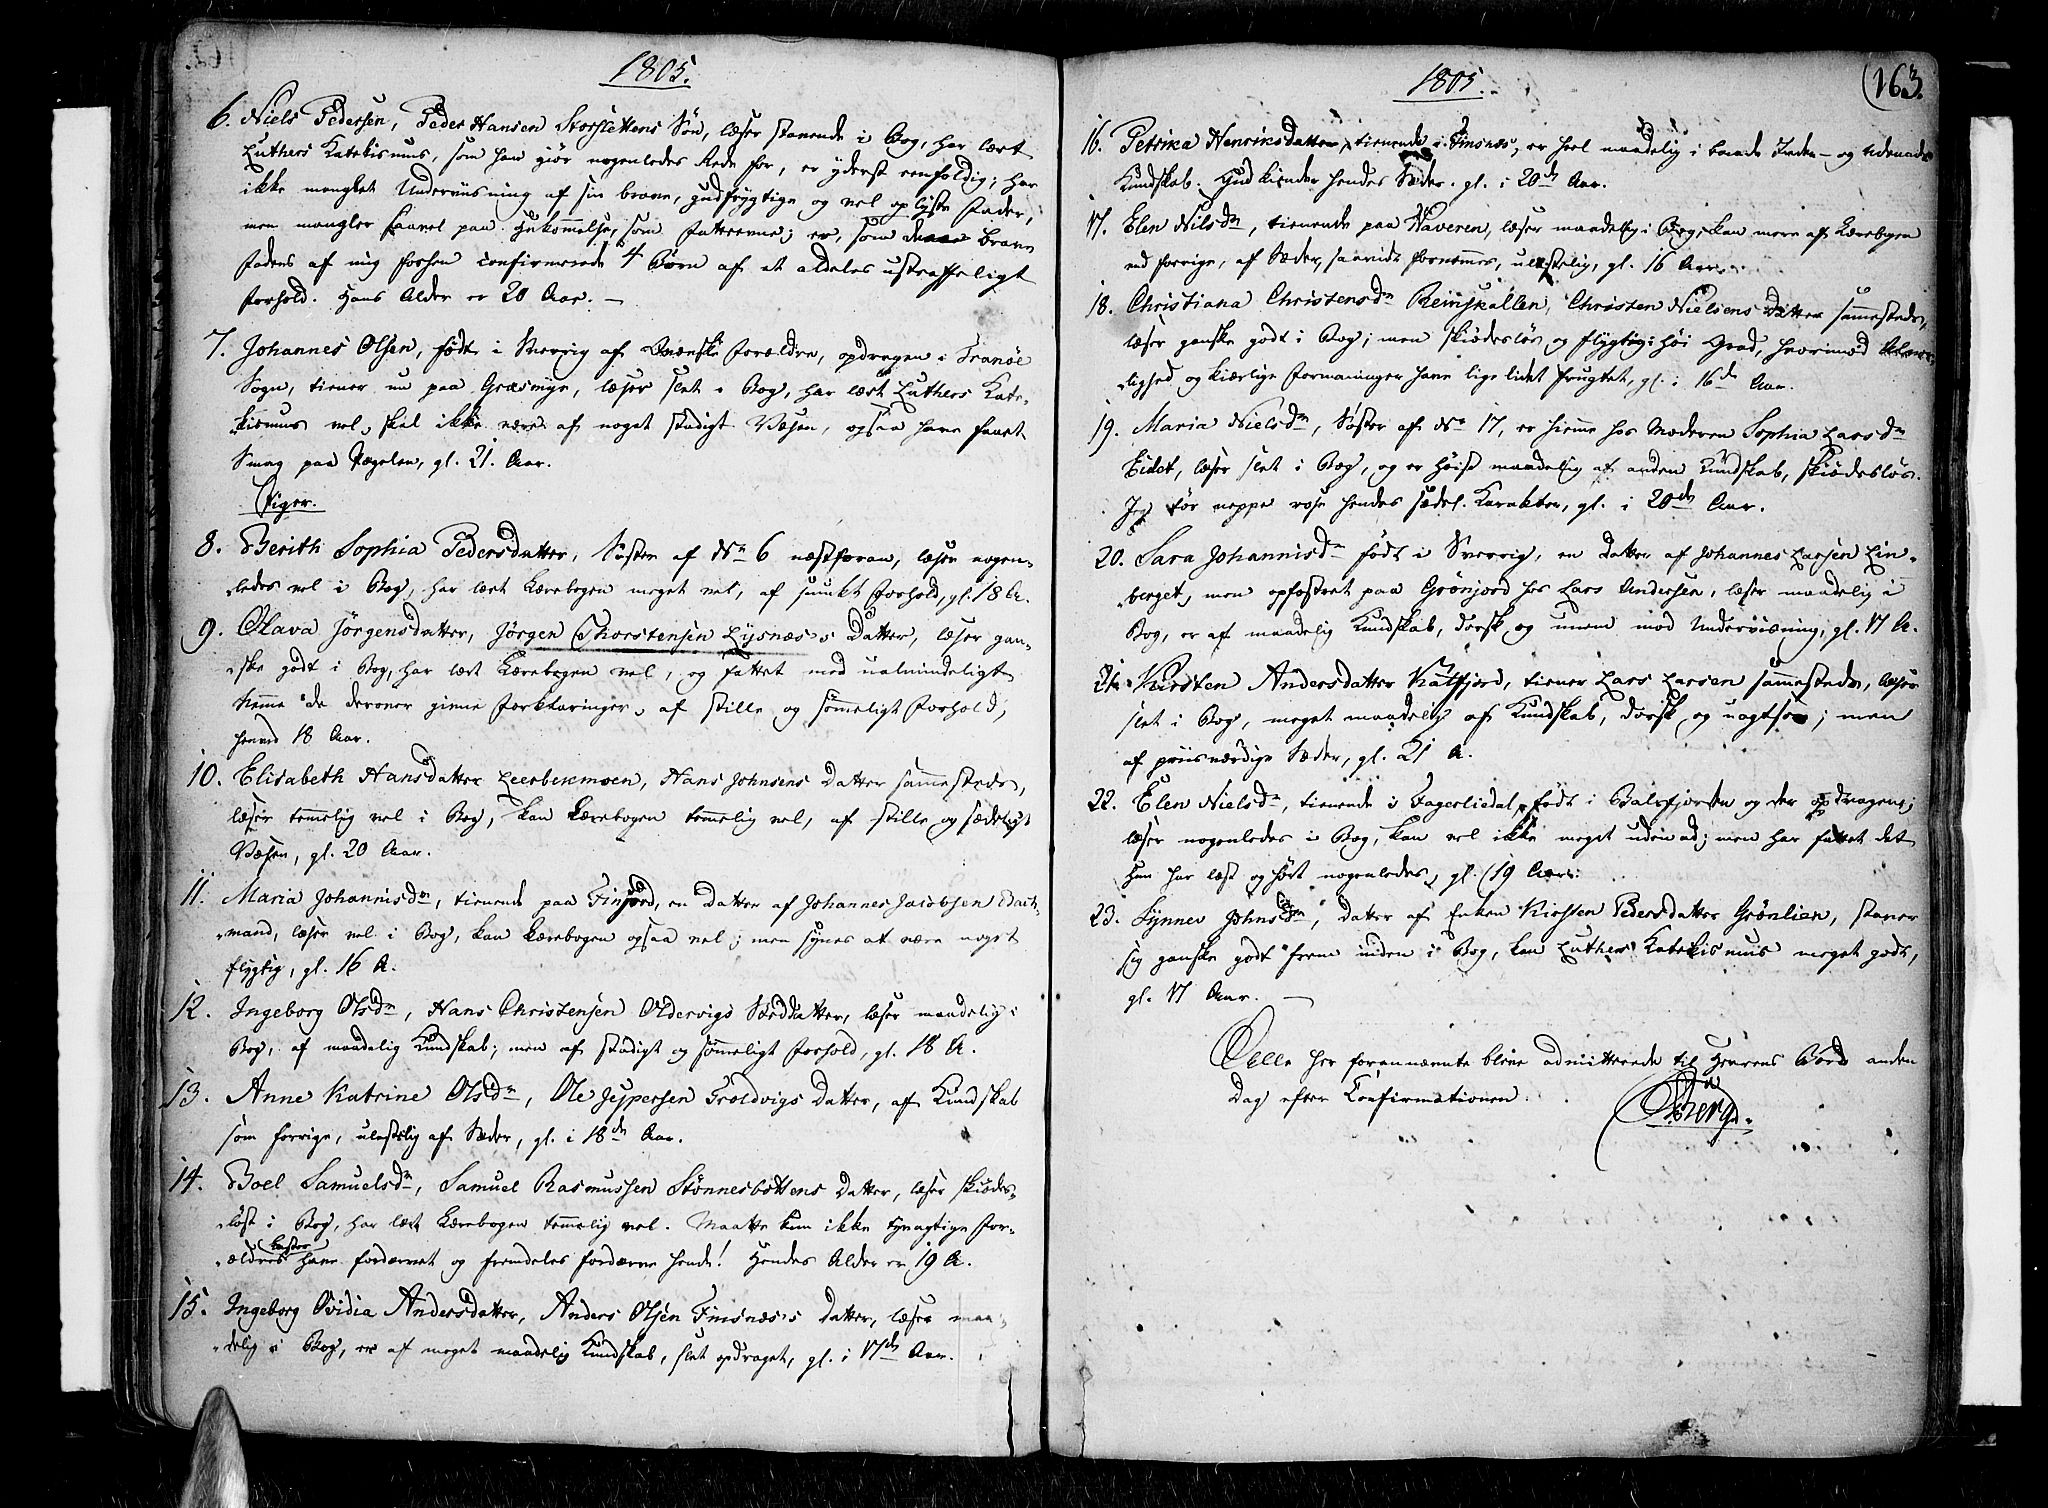 1805.
6. Niels Pedersen, Peder Hansen Storslettens Søn, læser stavende i Bog, har lært
Luthers Katekismus, som han giør nogenledes Rede for, er yderst eenfoldig; har
ikke manglet Underviisning af sin brave, gudfrygtige og vel oplyste Fader,
men mangler saavel paa Hukommelse, som Fatteevne; er, som brave
Faders af mig forhen confirmerede 4 Børn af et aldeles ustraffeligt
Forhold. Hans Alder er 20 Aar. —
7. Johannes Olsen, født i Sverrig af Svenske Forældre, opdragen i Tranöe
Sogn, tiener nu paa Græsmyr, læser slet i Bog, har lært Luthers Kate-
-kismus vel, skal ikke være af noget stadigt Væsen, ogsaa have faaet
Smag paa Pægelen, gl. 21. Aar.
Piger.
8. Berith Sophia Pedersdatter, Søster af No 6 næstforan, læser nogen-
-ledes vel i Bog, har lært Lærebogen meget vel, af smukt Forhold, gl. 18 A.
9. Olava Jörgensdatter, Jörgen Thorstensen Lysnæs's Datter, læser gan-
-ske godt i Bog, har lært Lærebogen vel, og fattet med ualmindeligt
Nemme de derover givne Forklaringer, af stille og sømmeligt Forhold,
henved 18 Aar.
10. Elisabeth Hansdatter Leerbekmoen, Hans Johnsens Datter sammesteds,
læser temmelig vel i Bog, kan Lærebogen temmelig vel, af stille og sædeligt
Væsen, gl. 20 Aar.
11. Maria Johannisdr, tienende paa Finfjord, en Datter af Johannes Jacobsen
-mand, læser vel i Bog, kan Lærebogen ogsaa vel; men synes at være noget
flygtig, gl. 16 A.
12. Ingeborg Olsdr, Hans Christensen Oldervigs Steddatter, læser maadelig i
Bog, af maadelig Kundskab; men af stadigt og sømmeligt Forhold, gl. 18 A.
13. Anne Katrine Olsdr, Ole Jespersen Troldvigs Datter, af Kundskab
som forrige, ulastelig af Sæder, gl. i 18de Aar.
14. Boel Samuelsdr, Samuel Rasmussen Stönnesbottens Datter, læser skiødes-
-løst i Bog, har lært Lærebogen temmelig vel. Maatte kun ikke Hynagtige For-
-ældres Laster have fordærvet og fremdeles fordærve hende! Hendes Alder er 19 A.
15. Ingeborg Ovidia Andersdatter, Anders Olsen Finsnæs's Datter, læser maa-
-delig i Bog, er af meget maadelig Kundskab, slet opdraget, gl. i 17de Aar.
1805.
163.
16. Petrika Henriksdatter, tienende i Finsnæs, er heel maadelig i baade Inden- og Udenads
Kundskab. Gud kiender hendes Sæder. gl. i 20de Aar.
17. Elen Nilsdr, tienende paa Kaveren, læser maadelig i Bog, kan mere af Lærebogen
end forrige, af Sæder, saavidt fornemmes, ulastelig, gl. 16 Aar.
18. Christiana Christensdr Reinskallen, Christen Nielsens Datter sammesteds,
læser ganske godt i Bog; men skiødesløs og flygtig i høi Grad, hvorimod Alvor-
-lighed og kiærlige Formaninger have lige lidet frugtet, gl. i 16de Aar.
19. Maria Nielsdr, Søster af No 17, er hiemme hos Moderen Sophia Larsdr
Eidet, læser slet i Bog, og er høist maadelig af anden Kundskab, skiødesløs.
Jeg tør neppe rose hendes sædel. Karakter, gl. i 20de Aar.
20. Sara Johannisdr født i Sverrig, en Datter af Johannes Larsen Lin-
-berget, men opfostret paa Grönjord hos Lars Andersen, læser maadelig i
Bog, er af maadelig Kundskab, dorsk og uvem mod Underviisning, gl. 17 A.
21. Kirsten Andersdatter Kalfjord, tiener Lars Larsen sammesteds, læser
slet i Bog, meget maadelig af Kundskab, dorsk og uagtsom; men
af priisværdige Sæder, gl. 21 A.
22. Elen Nielsdr, tienende i Fagerliedal, født i Balsfjorden og der opdragen;
læser nogenledes i Bog, kan vel ikke meget uden ad; men har fattet det
hun har læst og hørt nogenledes, gl. 19 Aar.
23. Synnev Johnsdr, Datter af Enken Kirsten Pedersdatter Grönlien, staver
sig ganske godt frem inden i Bog, kan Luthers Katekismus meget godt,
gl. 17 Aar. —
Alle her forannævnte bleve admitterede til Herrens Bord anden
Dag efter Confirmationen.
Berg.